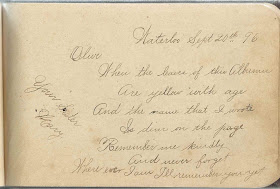 Waterloo Sept 20th 96
Olive
When the leaves of this Album
Are yellow with age
And the name that I wrote
Is dim on the page
Remember me kindly
And never forget
Where ever I am I'll remember you yet
Your Sister